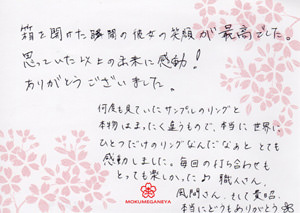 箱を開けた瞬間の彼女の笑顔が最高でした。
思っていた以上の出来に感動！
ありがとうございました。
何度も見ていたサンプルのリングと
本物はまったく違うもので、本当に世界に
ひとつだけのリングなんだなぁと とても
感動しました。毎回の打ち合わせも
とっても楽しかった♪ 職人さん、
風間さん、そして貴昭、
本当にどうもありがとう
MOKUMEGANEYA